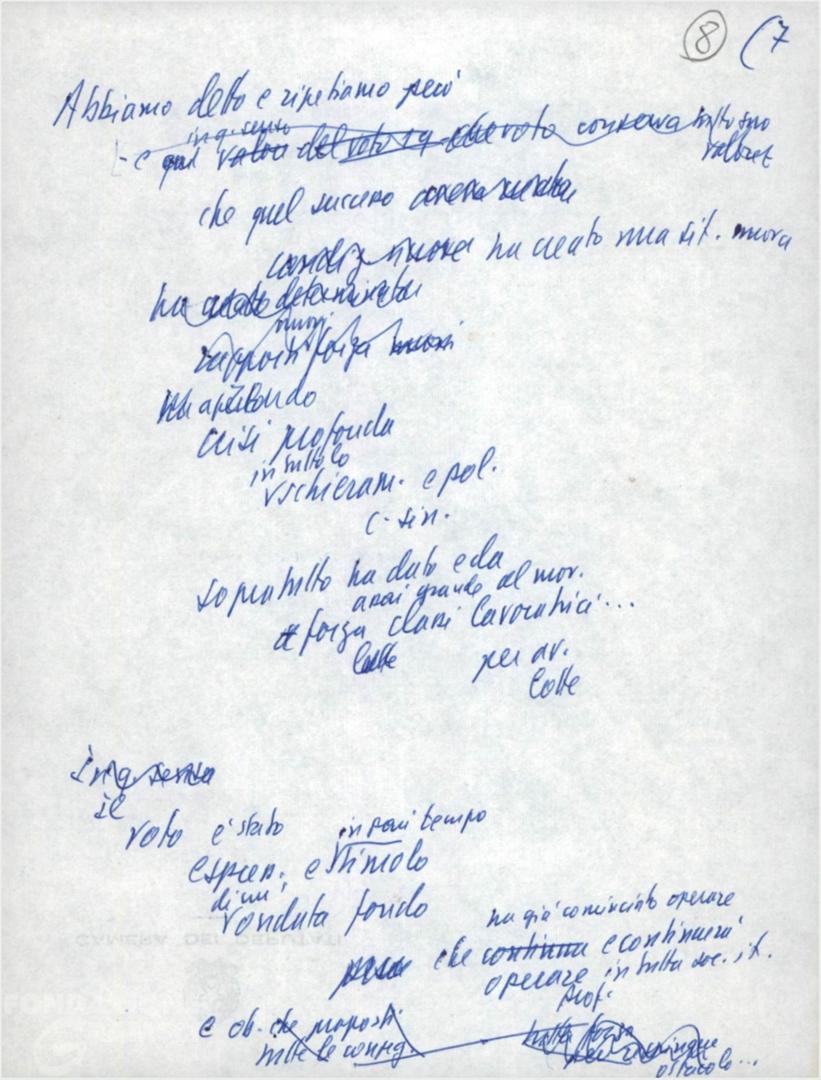 8 (7
Abbiamo detto e ripetiamo però
in q. senso
- e qui valore del voto voto conserva tutto suo
valore
che quel successo
condiz. nuove ha creato una sit. nuova
ha creato determinato
nuovi
rapporti forza nuovi
ha aperto
crisi profonda
in tutto lo
schieram. e pol.
c-sin.
soprattutto ha dato e da
assai grande al mov.
forza classi lavoratrici...
lotte per av.
lotte
in q. senso
il
voto è stato in pari tempo
espress. e stimolo
di un'
ondata fondo
ha già cominciato operare
che continua e continuerà
operare in tutta soc. it.
prof.
e ob. che proposti
tutte le conseg.
tutta forza
per
ostacolo...
CAMERA DEI DEPUTATI